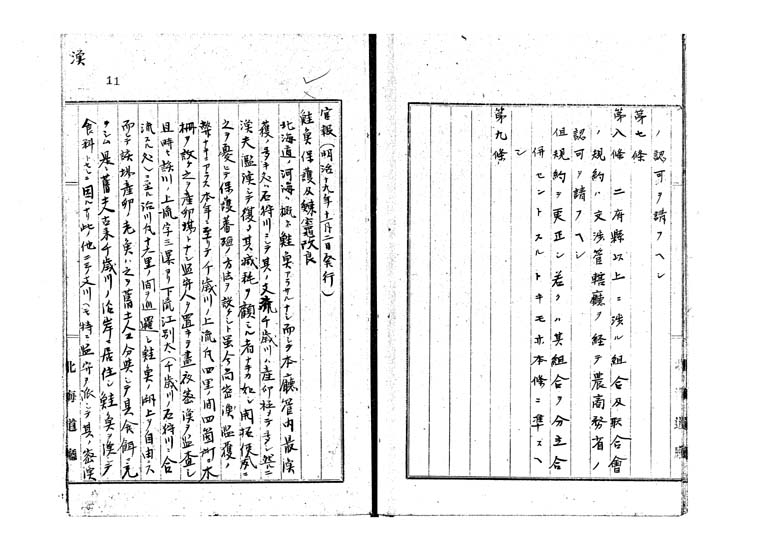 ノ認可ヲ請フヘシ
第七條
第八條 二府縣以上ニ渉ル組合及聯合會
ノ規約ハ文渉管轄廳ヲ経テ農商務省ノ
認可ヲ請フヘシ
但規約ヲ更正シ若クハ其組合ヲ分立合
併セントスルトキモ亦本條ニ準スヘ
シ
第九條
漁
11
官報(明治十九年十一月二日発行)
鮭魚保護及鰊竃改良
北海道ノ河海ハ概ネ鮭魚アラサルナシ而シテ本廳管内最漁
獲ノ多キ処ハ石狩川ニシテ其ノ支流千歳川ハ産卵
漁夫濫漁シテ復タ其減耗ヲ顧ミル者ナキカ如シ開拓使
之ヲ憂ヒテ保護蕃殖ノ方法ヲ設ケシト雖今尚密漁濫獲ノ
弊ナキニアラス本年ニ至リテ千歳川ノ上流凡四里ノ間四箇所ニ木
柵ヲ設ケ之ヲ産卵場トナシ監守人ヲ置キテ晝夜密漁ヲ監査シ
且時々該川ノ上流字三渠ヨリ下流江別太(千歳川石狩川ノ合
流スル処)ニ至ル沿川凡十六里ノ間ヲ巡邏シ鮭魚ノ溯上ヲ自由ニス
而シテ該場産卵ノ死魚ハ之ヲ舊土人ニ分與シテ其食餌ニ充
テシム是レ舊土人古来千歳川ノ沿岸ニ居住シ鮭魚ヲ漁シテ
食料トセシニ因ルナリ此他ニ三ノ支川ニモ特ニ監守ヲ派シテ其ノ密漁
北海道廳